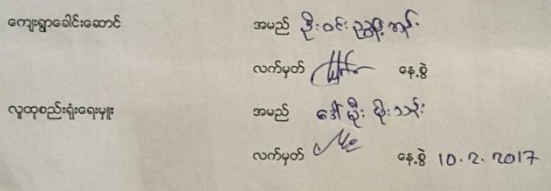 ကျေးရွာခေါင်းဆောင် အမည် ဦးဝင်း
လက်မှတ် နေ့စွဲ
လူထုစည်းရုံးရေးမှူး အမည် ဒေါ်မိုး မိုးသန်း
လက်မှတ် နေ့စွဲ 10.2.2017